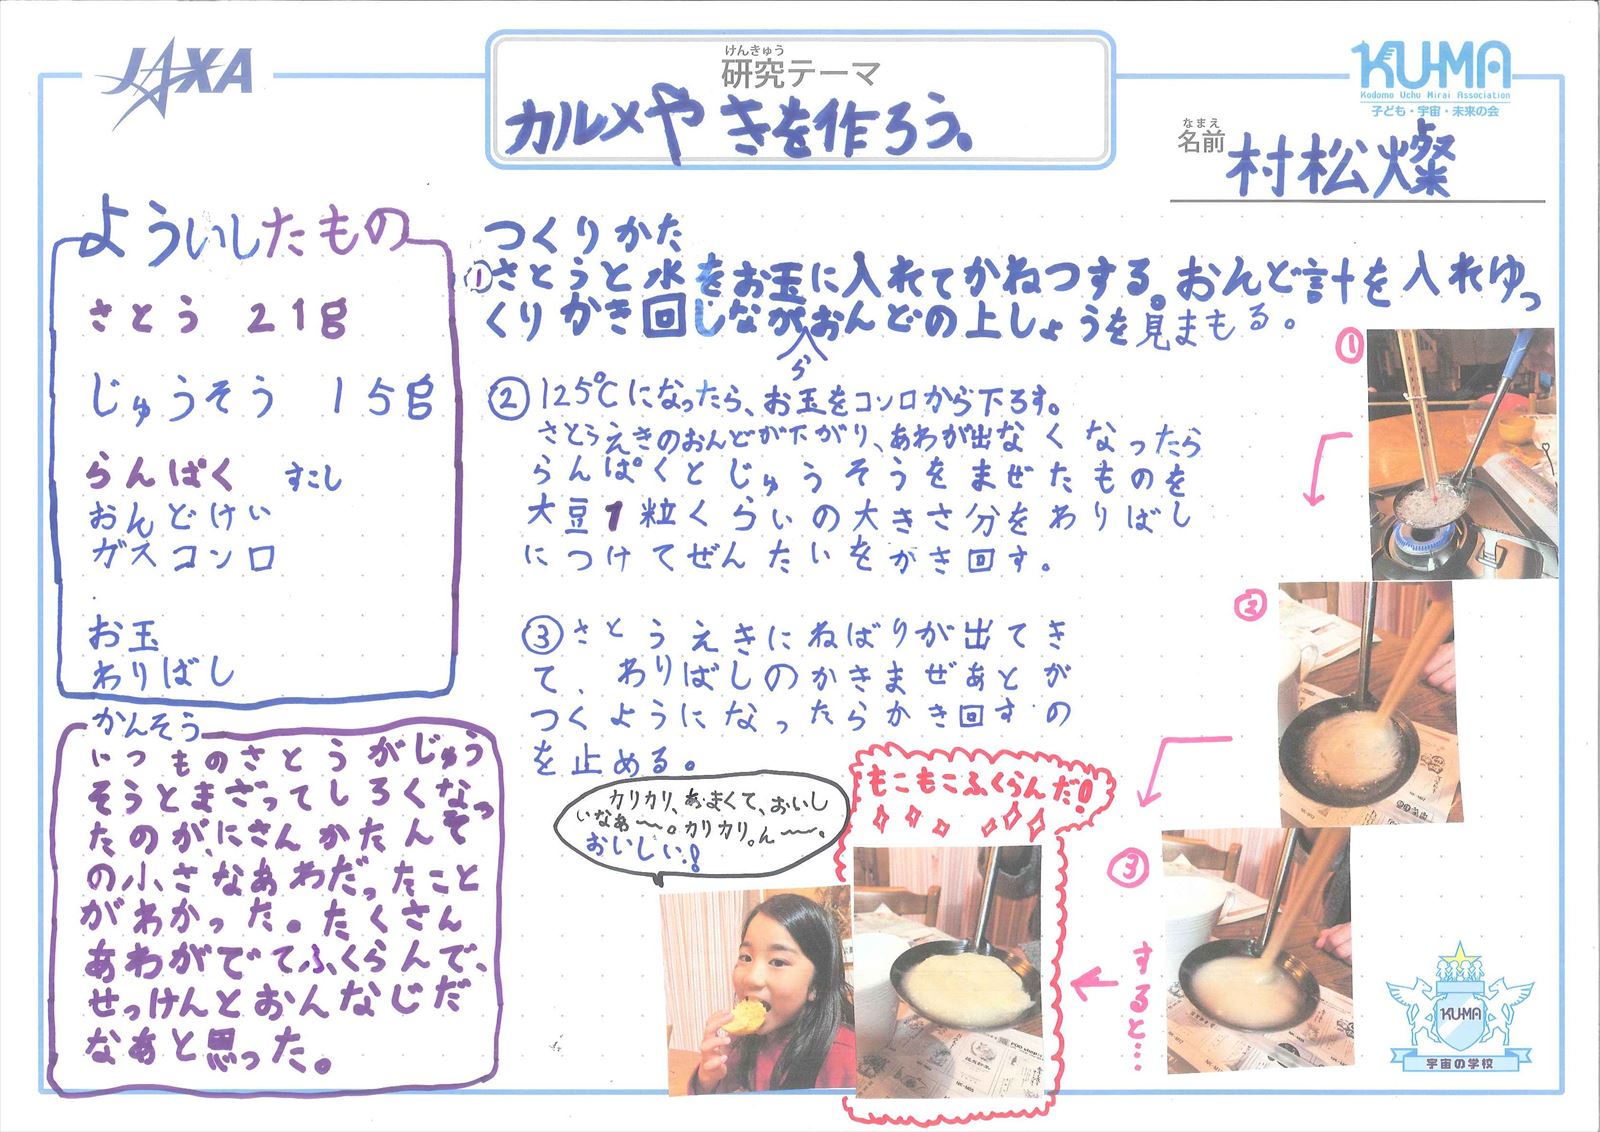 JAXA
けんきゅう
研究テーマ
カルメやきを作ろう。
KU-MA
Kodomo Uchu Mirai Association
子ども・宇宙・未来の会
なまえ
名前
村松燦
よういしたもの
さとう 21g
じゅうそう 15g
らんぱく すこし
おんどけい
ガスコンロ
お玉
わりばし
つくりかた
①さとうと水をお玉に入れてかねつする。おんど計を入れゆっ
くりかき回しながらおんどの上しょうを見まもる。
②125℃になったら、お玉をコンロから下ろす。
さとうえきのおんどが下がり、あわが出なくなったら
らんぱくとじゅうそうをまぜたものを
大豆1粒くらいの大きさ分をわりばし
につけてぜんたいをがき回す。
③さとうえきにねばりが出てき
て、わりばしのかきまぜあとが
つくようになったらかき回すの
を止める。
①
②
③
すると…
もこもこふくらんだ!
カリカリ、あまくて、おいし
いなあ〜。カリカリ。ん〜。
おいしい!
かんそう
いつものさとうがじゅう
そうとまざってしろくなっ
たのが、にさんかたんそ
の小さなあわだったこと
がわかった。たくさん
あわがでてふくらんで、
せっけんとおんなじだ
なあと思った。
KU-MA
宇宙の学校